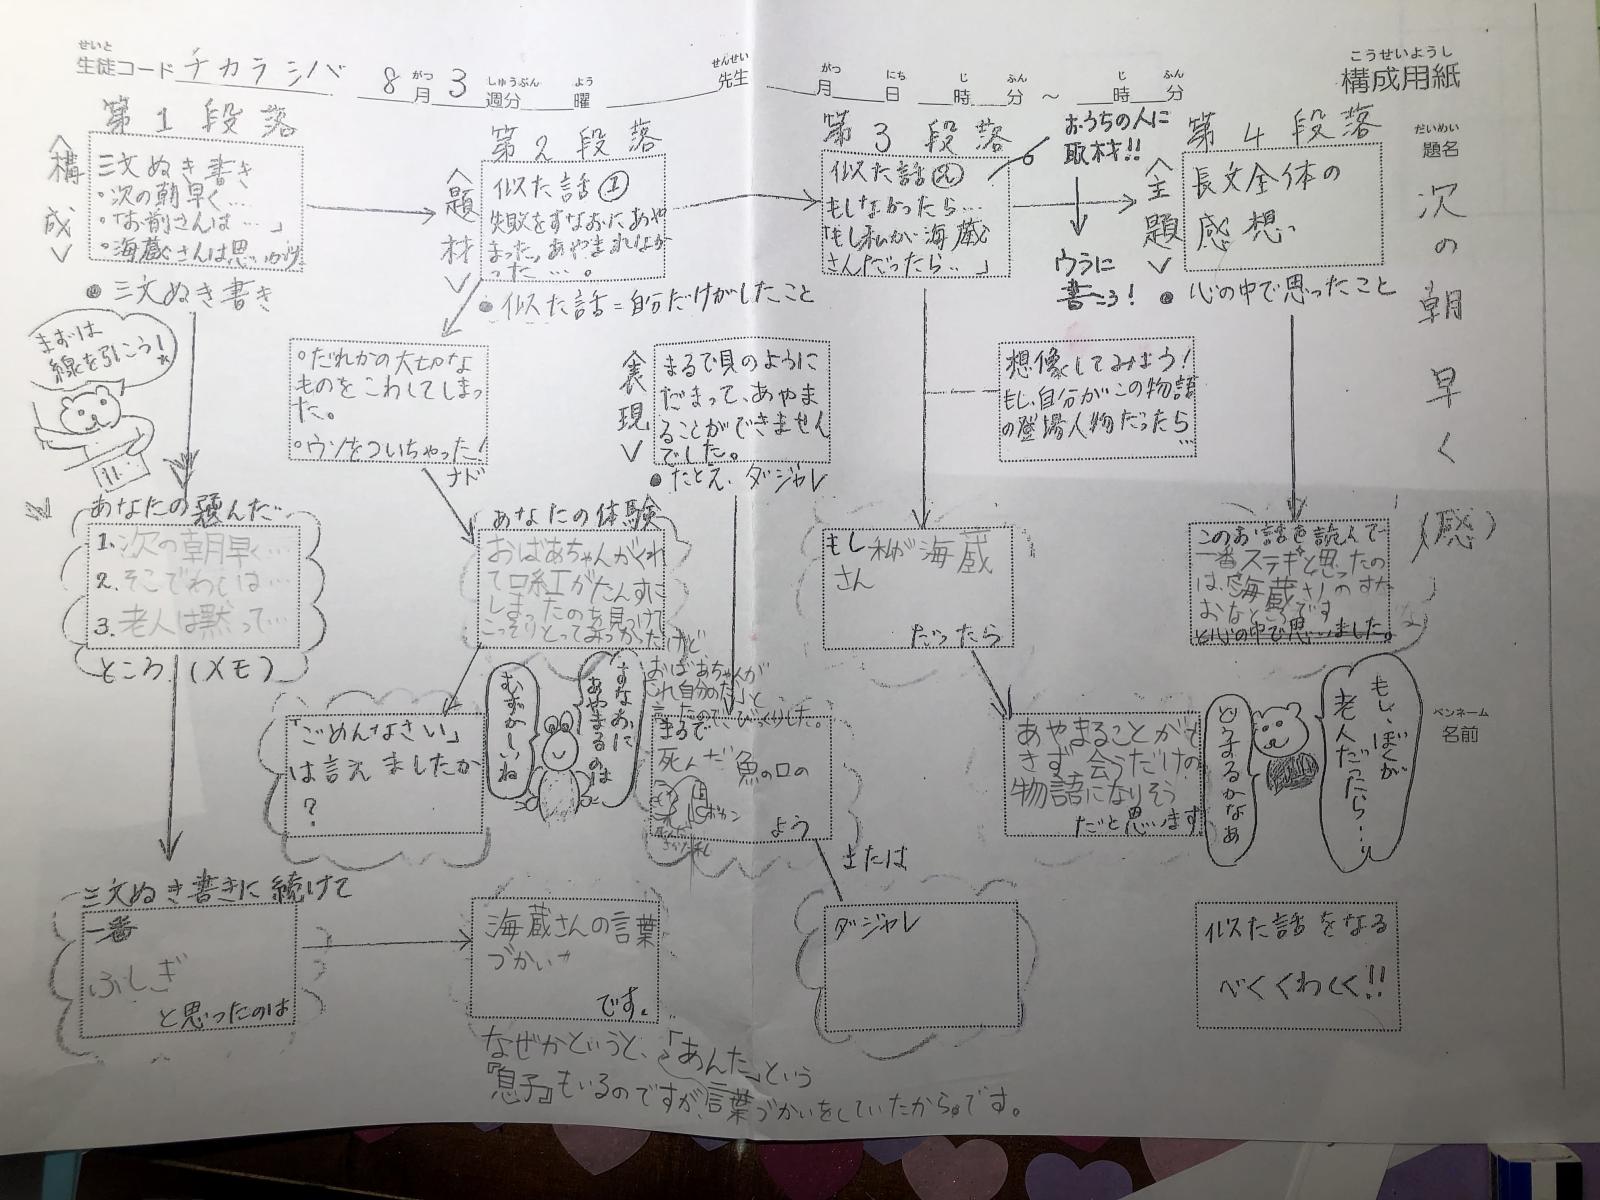 せいと
生徒コード チカラシバ 8月 3週分 曜 先生 月 日 時 分 ～ 時 分
がつ しゅうぶん よう せんせい がつ にち じ ふん じ ふん
こうせいようし
構成用紙
だいめい
題名
次の朝早く（感）
ペンネーム
名前
第1段落
＜構成＞
三文ぬき書き
・次の朝早く…
・「お前さんは…」
・海蔵さんは思いがけ
●三文ぬき書き
まずは
線を引こう！
あなたの選んだ
1. 次の朝早く…
2. そこでわしは…
3. 老人は黙って…
ところ（メモ）
三文ぬき書きに続けて
一番
ふしぎ
と思ったのは
海蔵さんの言葉
づかい
です。
なぜかというと、「あんた」という
『息子』もいるのですが、言葉づかいをしていたからです。
第2段落
＜題材＞
似た話①
失敗をすなおにあや
まった。あやまれなか
った…。
●似た話＝自分だけがしたこと
・だれかの大切な
ものをこわしてしまっ
た。
・ウソをついちゃった！
など
＜表現＞
まるで貝のように
だまって、あやま
ることができません
でした。
●たとえ、ダジャレ
あなたの体験
おばあちゃんがくれ
て口紅がたんすに
しまったのを見つけて
こっそりとってみつかったけど
おばあちゃんが
「これ自分のだ」と
言ったので、びっくりした。
「ごめんなさい」
は言えましたか
？
すなおに
あやまるのは
むずかしいね
まるで
死んだ魚の口の
ポカン
よう
または
ダジャレ
第3段落
おうちの人に
取材！！
似た話②
もしなかったら…
「もし私が海蔵
さんだったら…」
ウラに
書こう！
想像してみよう！
もし、自分がこの物語
の登場人物だったら
…
もし私が海蔵
さん
だったら
あやまることがで
きず会うだけの
物語になりそう
だと思います
第4段落
＜主題＞
長文全体の
感想。
●心の中で思ったこと
このお話を読んで
一番ステキと思ったの
は、海蔵さんのすな
おなところです
と心の中で思いました。
もし、ぼくが
老人だったら…
どうするかなあ
似た話をなる
べくくわしく！！